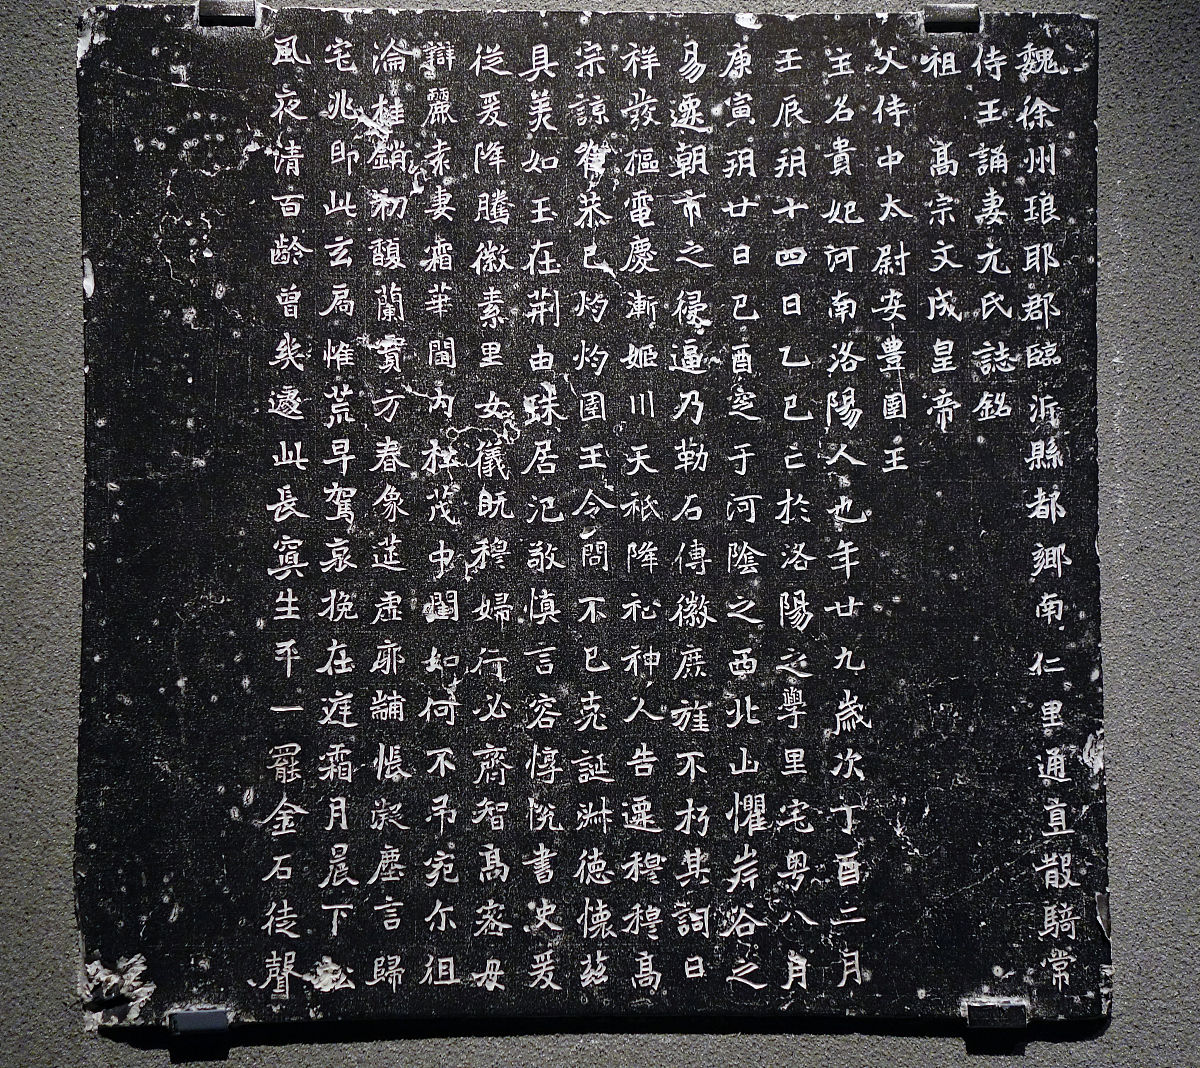 魏徐州琅耶郡臨沂縣都鄉南仁里通直散騎常
侍王誦妻元氏誌銘
祖 高宗文成皇帝
父侍中太尉安豊圉王
主名貴妃河南洛陽人也年廿九歲次丁酉二月
壬辰朔十四日乙巳亡於洛陽之學里宅粵八月
庚寅朔廿日己酉窆于河陰之西北山懼岸谷之
易遷朝市之侵逼乃勒石傳徽庶旌不朽其詞曰
祥發樞電慶漸姬川天祇降祉神人告遷穆穆高
宗諒恭己灼灼圉王令問不已克誕淋德懷茲
具美如玉在荊由珠居汜敬慎言容惇悅書史爰
從爰降騰徽素里女儀既穆婦行必齊智高密母
辯麗袁妻霜華閫內松茂中閨如何不弔宛尔徂
淪桂銷初馥蘭實方春象筵虛廓黼悵凝塵言歸
宅兆即此玄扃惟荒早駕哀挽在庭霜月晨下松
風夜清百齡曾幾遽此長冥生平一罷金石徒聲